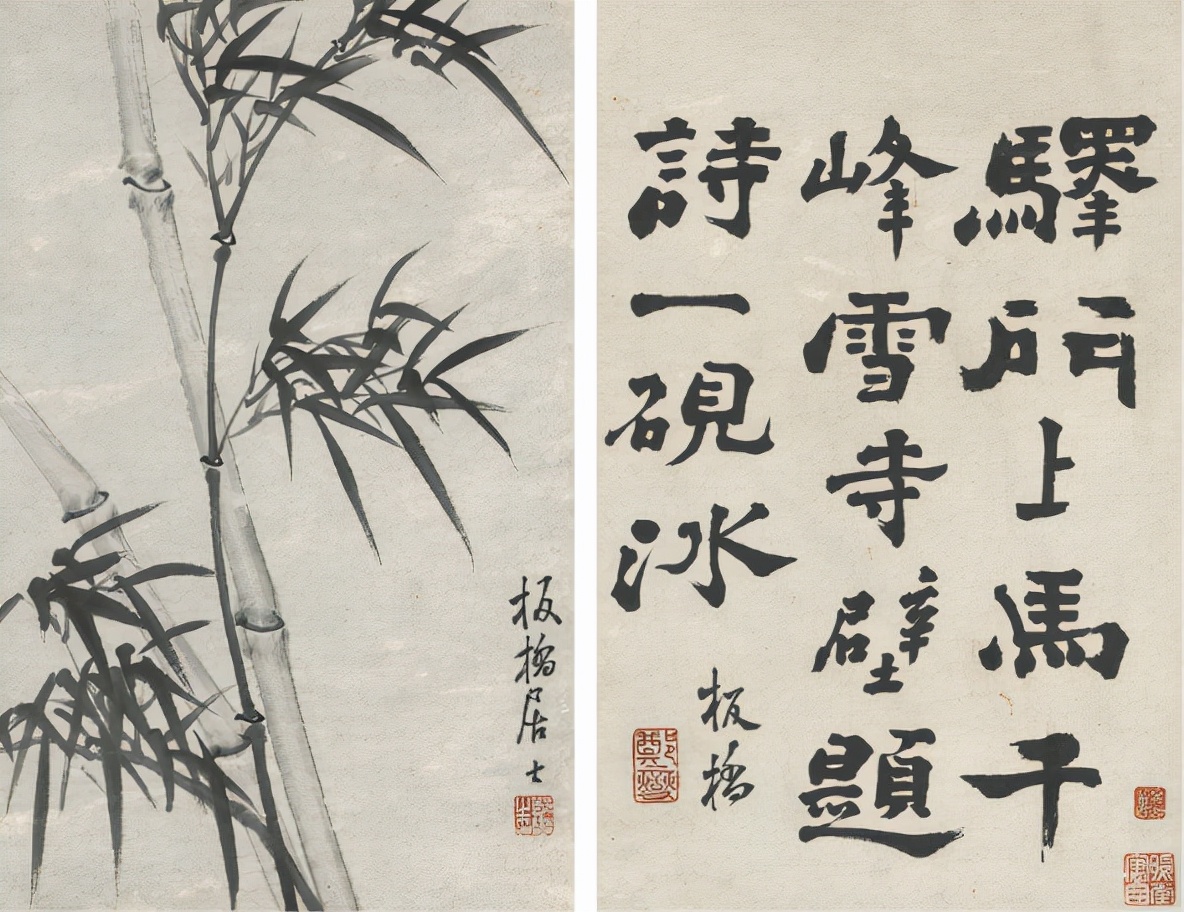 驛門上馬千
峰雪寺壁題
詩一硯冰
板橋
鄭燮
板橋居士